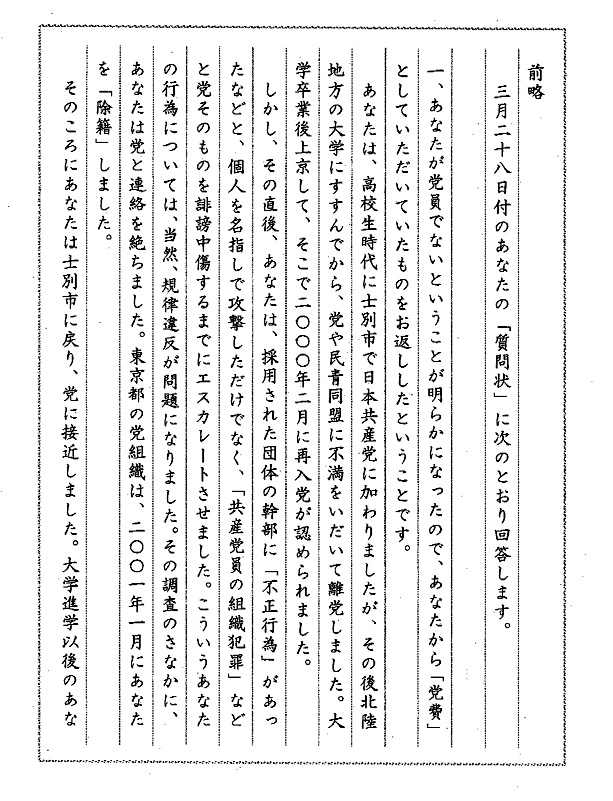 前略
三月二十八日付のあなたの「質問状」に次のとおり回答します。
一、あなたが党員でないということが明らかになったので、あなたから「党費」
としていただいていたものをお返ししたということです。
あなたは、高校生時代に士別市で日本共産党に加わりましたが、その後北陸
地方の大学にすすんでから、党や民青同盟に不満をいだいて離党しました。大
学卒業後上京して、そこで二〇〇〇年二月に再入党が認められました。
しかし、その直後、あなたは、採用された団体の幹部に「不正行為」があっ
たなどと、個人を名指しで攻撃しただけでなく、「共産党員の組織犯罪」など
と党そのものを誹謗中傷するまでにエスカレートさせました。こういうあなた
の行為については、当然、規律違反が問題になりました。その調査のさなかに、
あなたは党と連絡を絶ちました。東京都の党組織は、二〇〇一年一月にあなた
を「除籍」しました。
そのころにあなたは士別市に戻り、党に接近しました。大学進学以後のあな